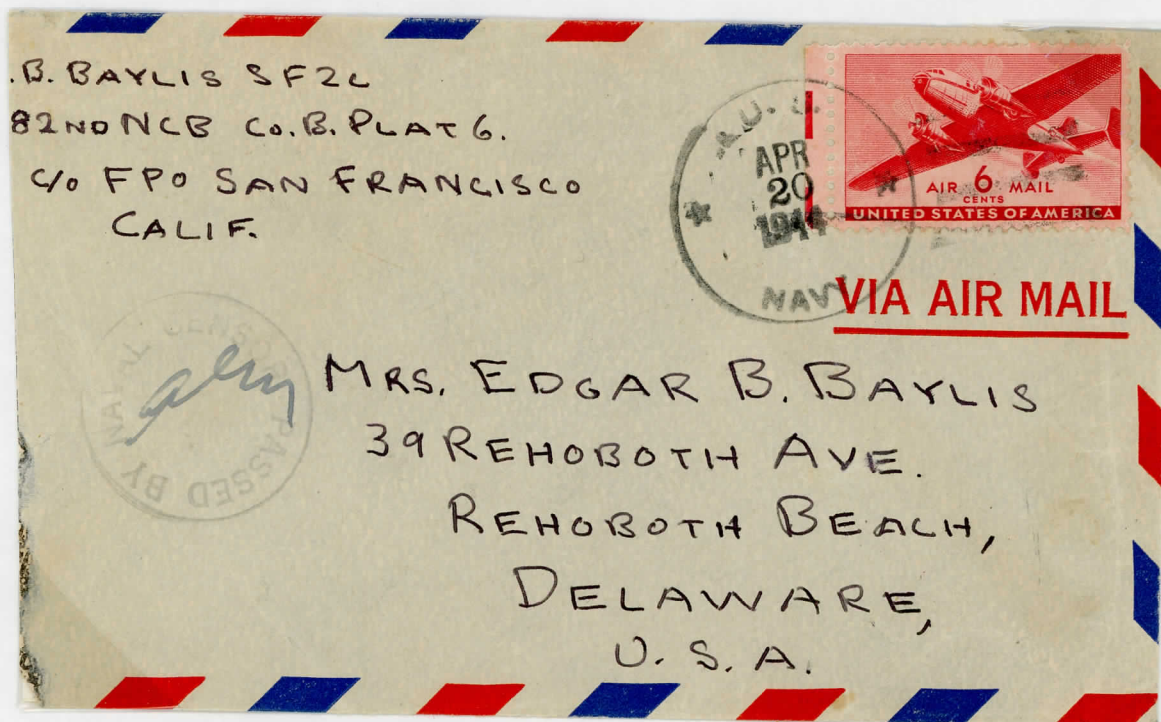 .B. BAYLIS SF2C
82ND NCB CO. B. PLAT 6.
C/O FPO SAN FRANCISCO
CALIF.
U.S.
APR
20
1944
NAVY
AIR 6 MAIL
CENTS
UNITED STATES OF AMERICA
VIA AIR MAIL
PASSED BY NAVAL CENSOR
MRS. EDGAR B. BAYLIS
39 REHOBOTH AVE.
REHOBOTH BEACH,
DELAWARE,
U.S.A.